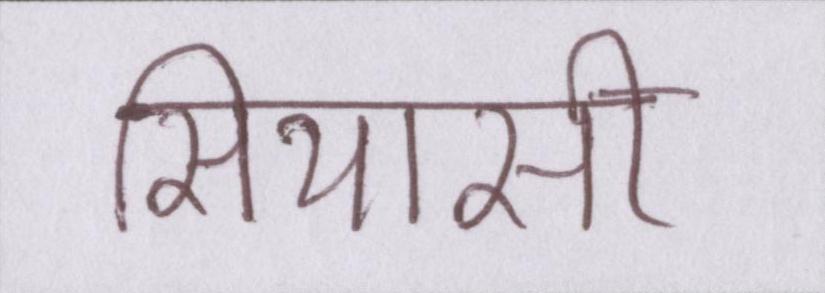 सियासी